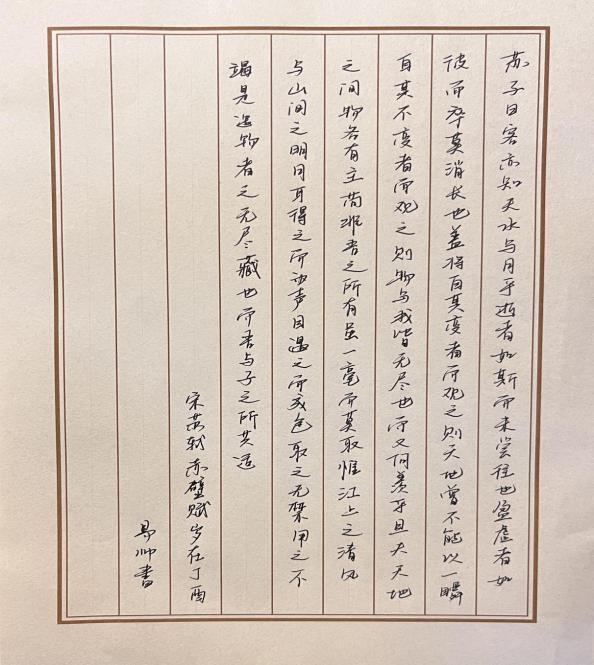 苏子曰客亦知夫水与月乎逝者如斯而未尝往也盈虚者如
彼而卒莫消长也盖将自其变者而观之则天地曾不能以一瞬
自其不变者而观之则物与我皆无尽也而又何羡乎且夫天地
之间物各有主苟非吾之所有虽一毫而莫取惟江上之清风
与山间之明月耳得之而为声目遇之而成色取之无禁用之不
竭是造物者之无尽藏也而吾与子之所共适
宋苏轼赤壁赋岁在丁酉
易帅书